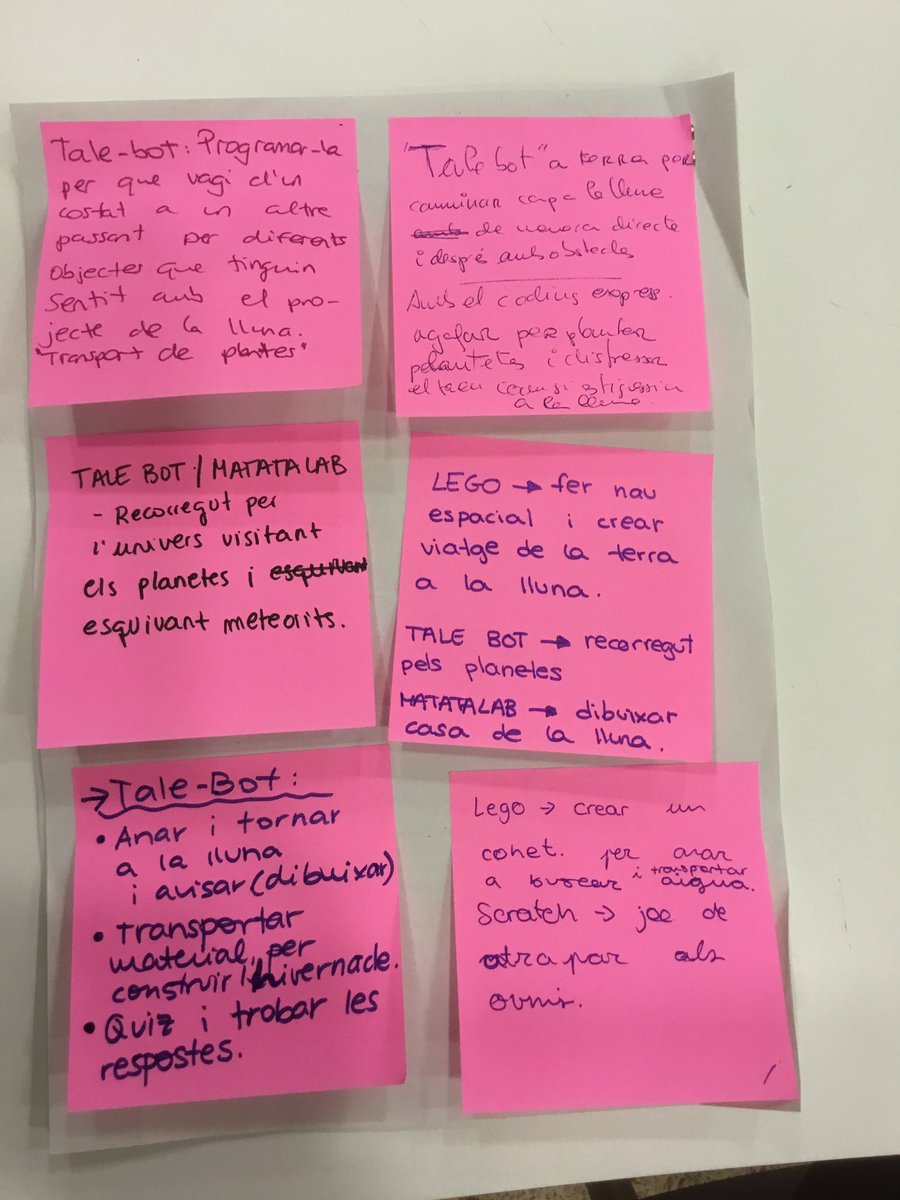 Tale-bot: Programar-la
per que vagi d'un
costat a un altre
passant per diferents
objectes que tinguin
sentit amb el pro-
jecte de la lluna.
"Transport de plantes"
"Tale bot" a terra per
caminar cap a la lluna
de manera directe
i després amb obstacles
Amb el codius express.
agafar per plantar
plantetes i disfressar
el tren com si estiguessin
a la lluna.
TALE BOT / MATATALAB
- Recorregut per
l'univers visitant
els planetes i esquivant
esquivant meteorits.
LEGO → fer nau
espacial i crear
viatge de la terra
a la lluna.
TALE BOT → recorregut
pels planetes
MATATALAB → dibuixar
casa de la lluna.
→ Tale-Bot:
• Anar i tornar
a la lluna
i avisar (dibuixar)
• Transportar
material, per
construir l'hivernacle.
• Quiz i trobar les
respostes.
Lego → crear un
cohet. per anar
a buscar i transportar aigua.
Scratch → joc de
atrapar als
ovnis.